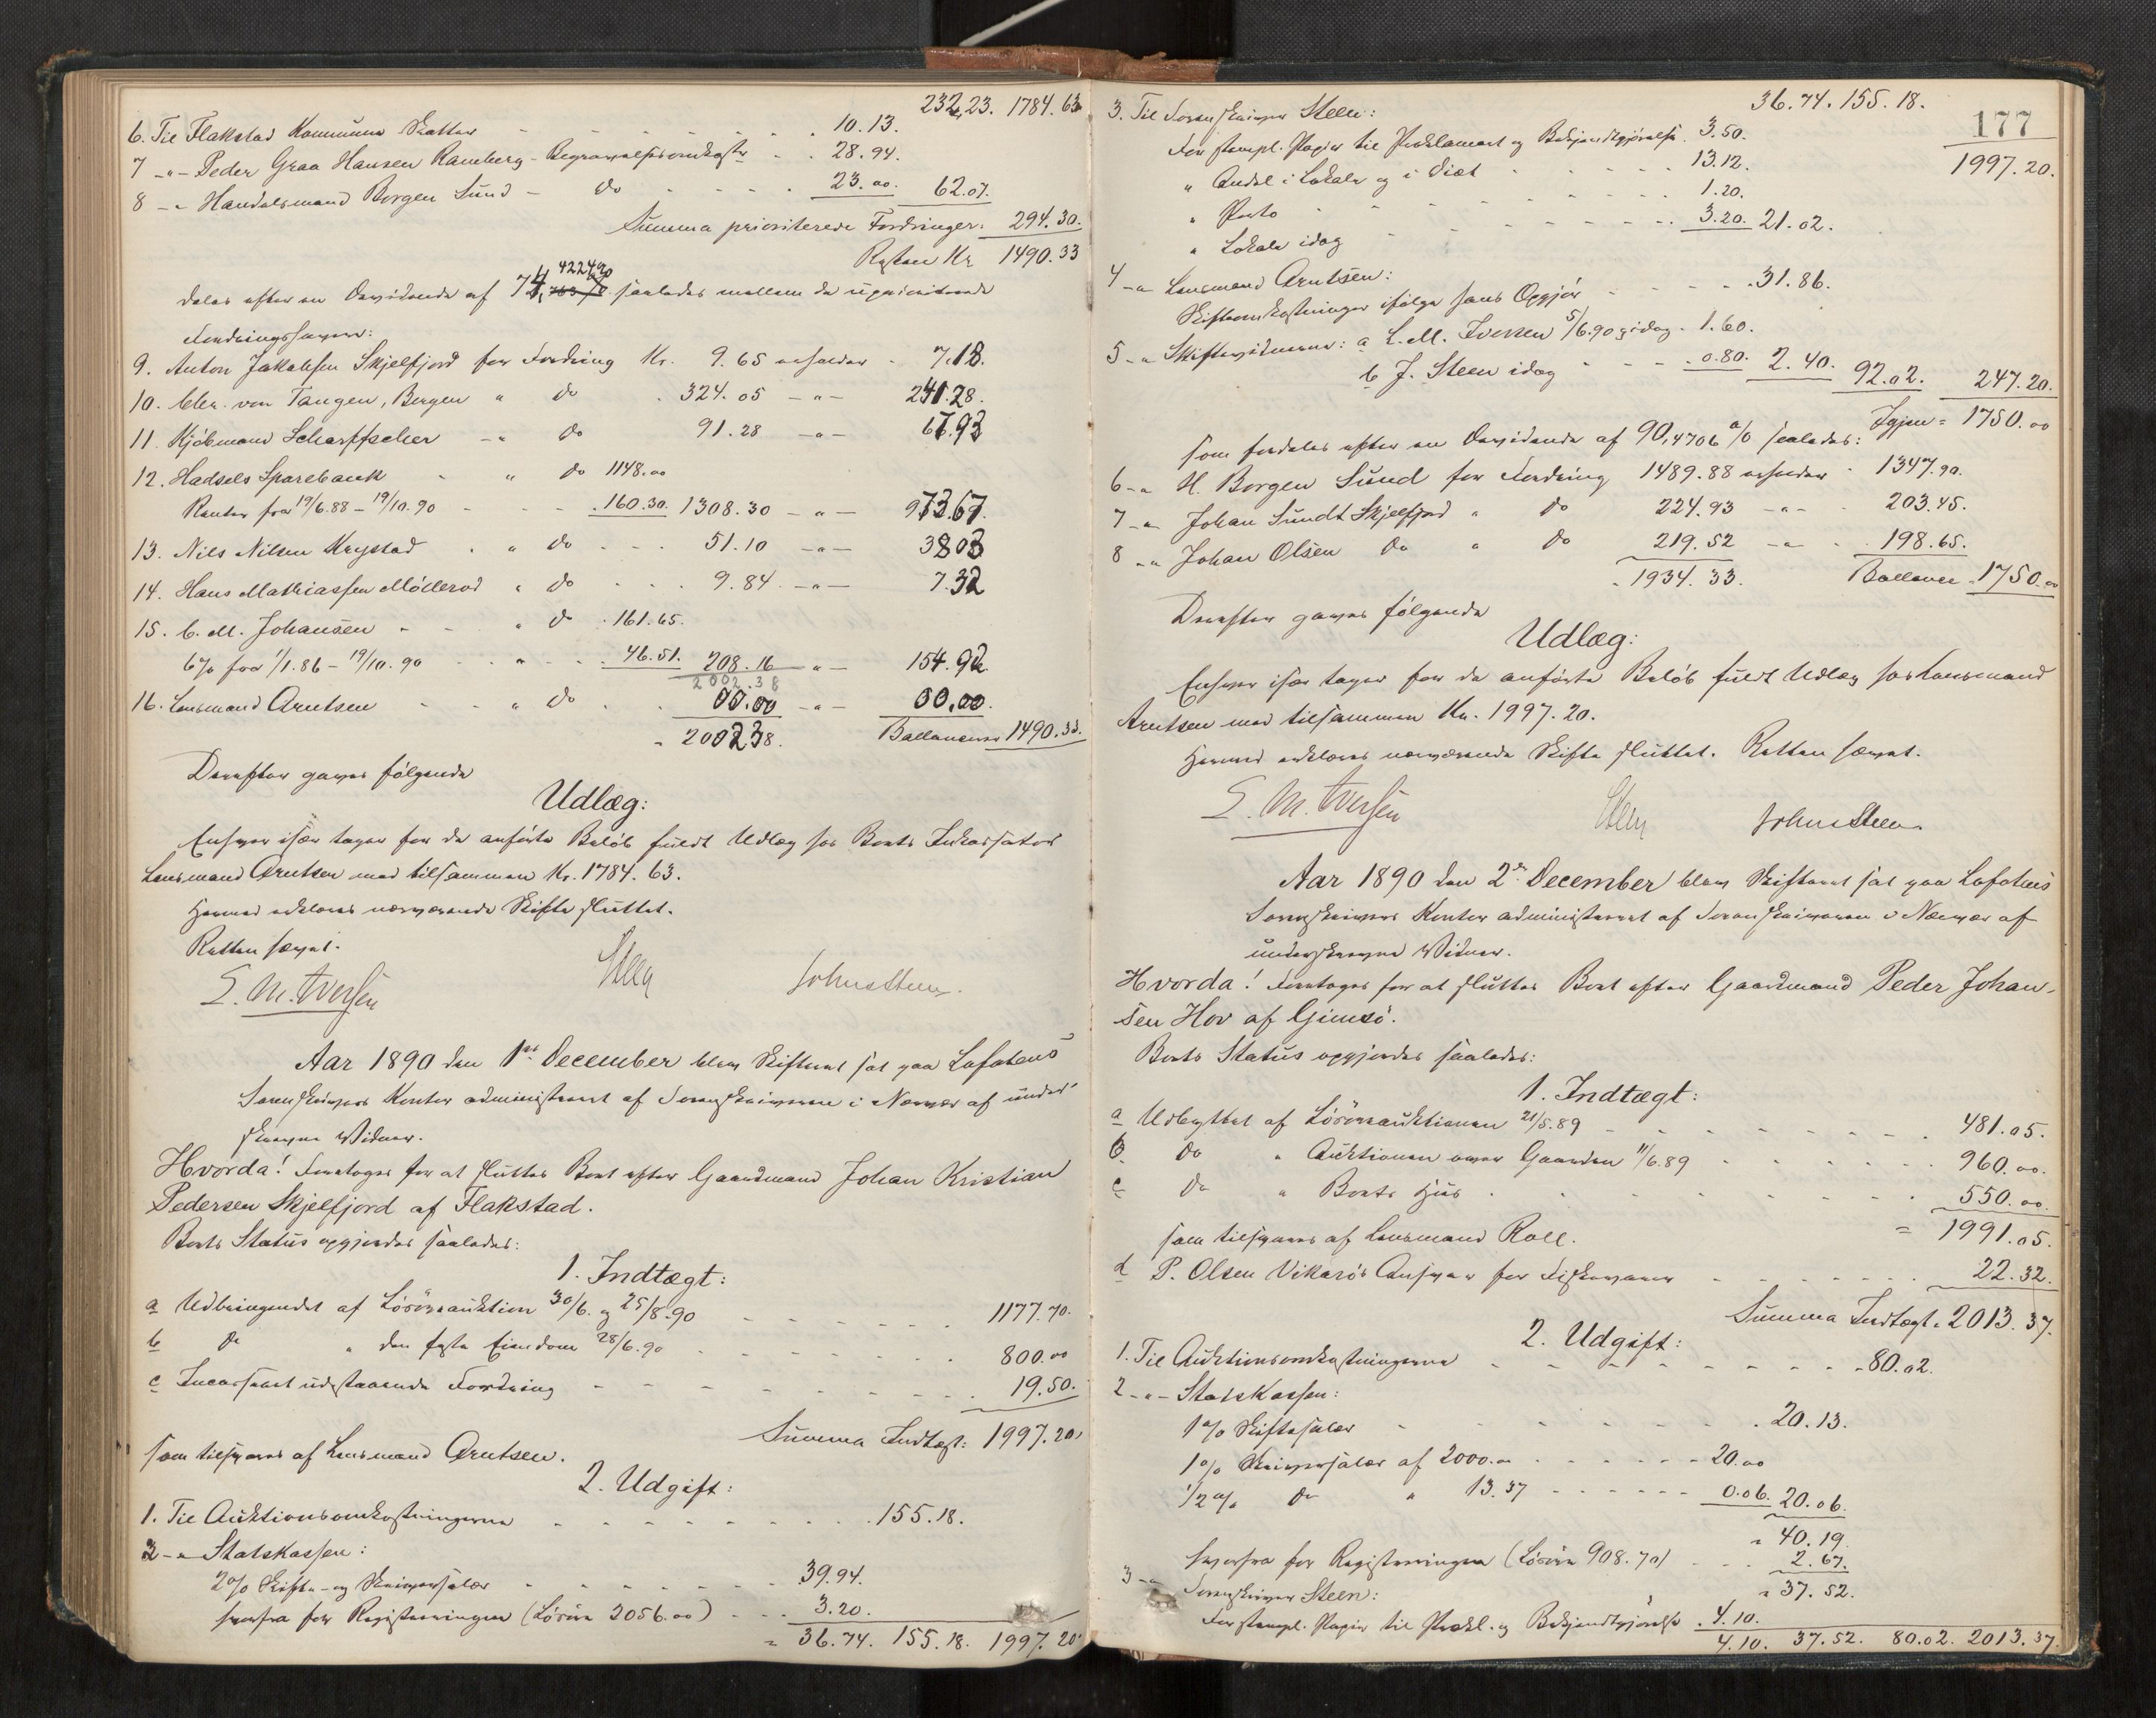 232,23. 1784.63
6. Til Flakstad Kommune Skatter 10.13.
7 -"- Peder Graa Hansen Ramberg - Begravelsesomkostn 28.94.
8 -" Handelsmand Borgen Sund - do 23.00. 62.07.
Summa prioriterede Fordringer: 294.30.
Resten Kr 1490.33
deles efter en Dividende af 74,42240 % saaledes mellem de uprioriterede
Fordringshavere:
9. Anton Jakobsen Skjelfjord for Fordring Kr. 9.65 erholder 7.18.
10. Chr. von Tangen, Bergen " do 324.05 -"- 241.28.
11. Kjöbmand Scharffscher -" do 91.28 -"- 67.93
12. Hadsels Sparebank " do 1148.00
Renter fra 19/6.88 - 19/10.90 160.30. 1308.30 -"- 973.67.
13. Nils Nilsen Krystad " do 51.10 -"- 38.03
14. Hans Mathiassen Möllerod " do 9.84 -"- 7.32
15. C. M. Johansen " do 161.65.
6% fra 1/1.86 - 19/10.90 46.51. 208.16 " - 154.92
2002.38
16. Lensmand Arntsen " do 00.00 -"- 00,00.
= 2002.38. Ballancerer 1490.33.
Derefter gaves følgende
Udlæg:
Enhver især tager for de anførte Beløb fuldt Udlæg hos Boets Inkassator
Lensmand Arntsen med tilsammen Kr. 1784.63.
Hermed erklæres nærværende Skifte sluttet.
Retten hævet.
E. M. Iversen Steen John Steen
Aar 1890 den 1ste December blev Skifteret sat paa Lofotens
Sorenskrivers Kontor administreret af Sorenskriveren i Nærvær af under-
skrevne Vidner.
Hvorda! Foretoges for at sluttes Boet efter Gaardmand Johan Kristian
Pedersen Skjelfjord af Flakstad.
Boets Status opgjordes saaledes:
1. Indtægt:
a Udbringendet af Løsøreauktion 30/6. og 25/8.90 1177.70.
b do " den faste Eiendom 28/6.90 800.00
c Incasseret udestaaende Fordring 19.50.
Summa Indtægt: 1997.20.
som tilsvares af Lensmand Arntsen.
2. Udgift:
1. Til Auktionsomkostningerne 155.18.
2 -"- Statskassen:
2% Skifte- og Skriversalær 39.94.
herfra for Registreringen (Løsøre 2056.00) 3.20.
= 36.74. 155.18. 1997.20.
177
36.74. 155.18. 1997.20.
3. Til Sorenskriver Steen:
For stempl. Papir til Proklamaet og Bekjendtgjørelse 3.50.
" Andel i Lokale og i Diæt 13.12.
" Porto 1.20.
" Lokale idag 3.20. 21.02.
4 -" Lensmand Arntsen:
Skifteomkostninger ifølge hans Opgjør 31.86.
5 -" Skiftevidnerne: a L. M. Iversen 5/6.90 og idag 1.60.
b J. Steen idag 0.80. 2.40. 92.02. 247.20.
Igjen = 1750.00
som fordeles efter en Dividende af 90,4706 % saaledes:
6 -" H. Borgen Sund for Fordring 1489.88 erholder 1347.90.
7 -" Johan Sundt Skjelfjord " do 224.93 -"- 203.45.
8 -" Johan Olsen do " do 219.52 -"- 198.65.
= 1934.33. Ballancer 1750.00
Derefter gaves følgende
Udlæg:
Enhver især tager for de anførte Beløb fuldt Udlæg hos Lensmand
Arntsen med tilsammen Kr. 1997.20.
Hermed erklæres nærværende Skifte sluttet. Retten hævet.
E. M. Iversen Steen John Steen
Aar 1890 den 2den December blev Skifteret sat paa Lofotens
Sorenskrivers Kontor administreret af Sorenskriveren i Nærvær af
underskrevne Vidner.
Hvorda! Foretoges for at sluttes Boet efter Gaardmand Peder Johan-
sen Hov af Gimsö.
Boets Status opgjordes saaledes:
1. Indtægt:
a Udbyttet af Løsøreauktionen 21/5.89 481.05.
b do " Auktionen over Gaarden 11/6.89 960.00.
c do " Boets Hus 550.00.
som tilsvares af Lensmand Roll. = 1991.05.
d P. Olsen Vikarös Ansvar for Fiskevarer 22.32.
Summa Indtægt = 2013.37.
2. Udgift:
1. Til Auktionsomkostningerne 80.02.
2 -"- Statskassen:
1% Skiftesalær 20.13.
1% Skriversalær af 2000.00 20.00
1/2% do " 13.37 0.06. 20.06.
= 40.19
herfra for Registreringen (Løsøre 908.70) 2.67.
3 -" Sorenskriver Steen: = 37.52.
For stempl. Papir til Prokl. og Bekjendtgjørelse 4.10.
4.10. 37.52. 80.02. 2013.37.